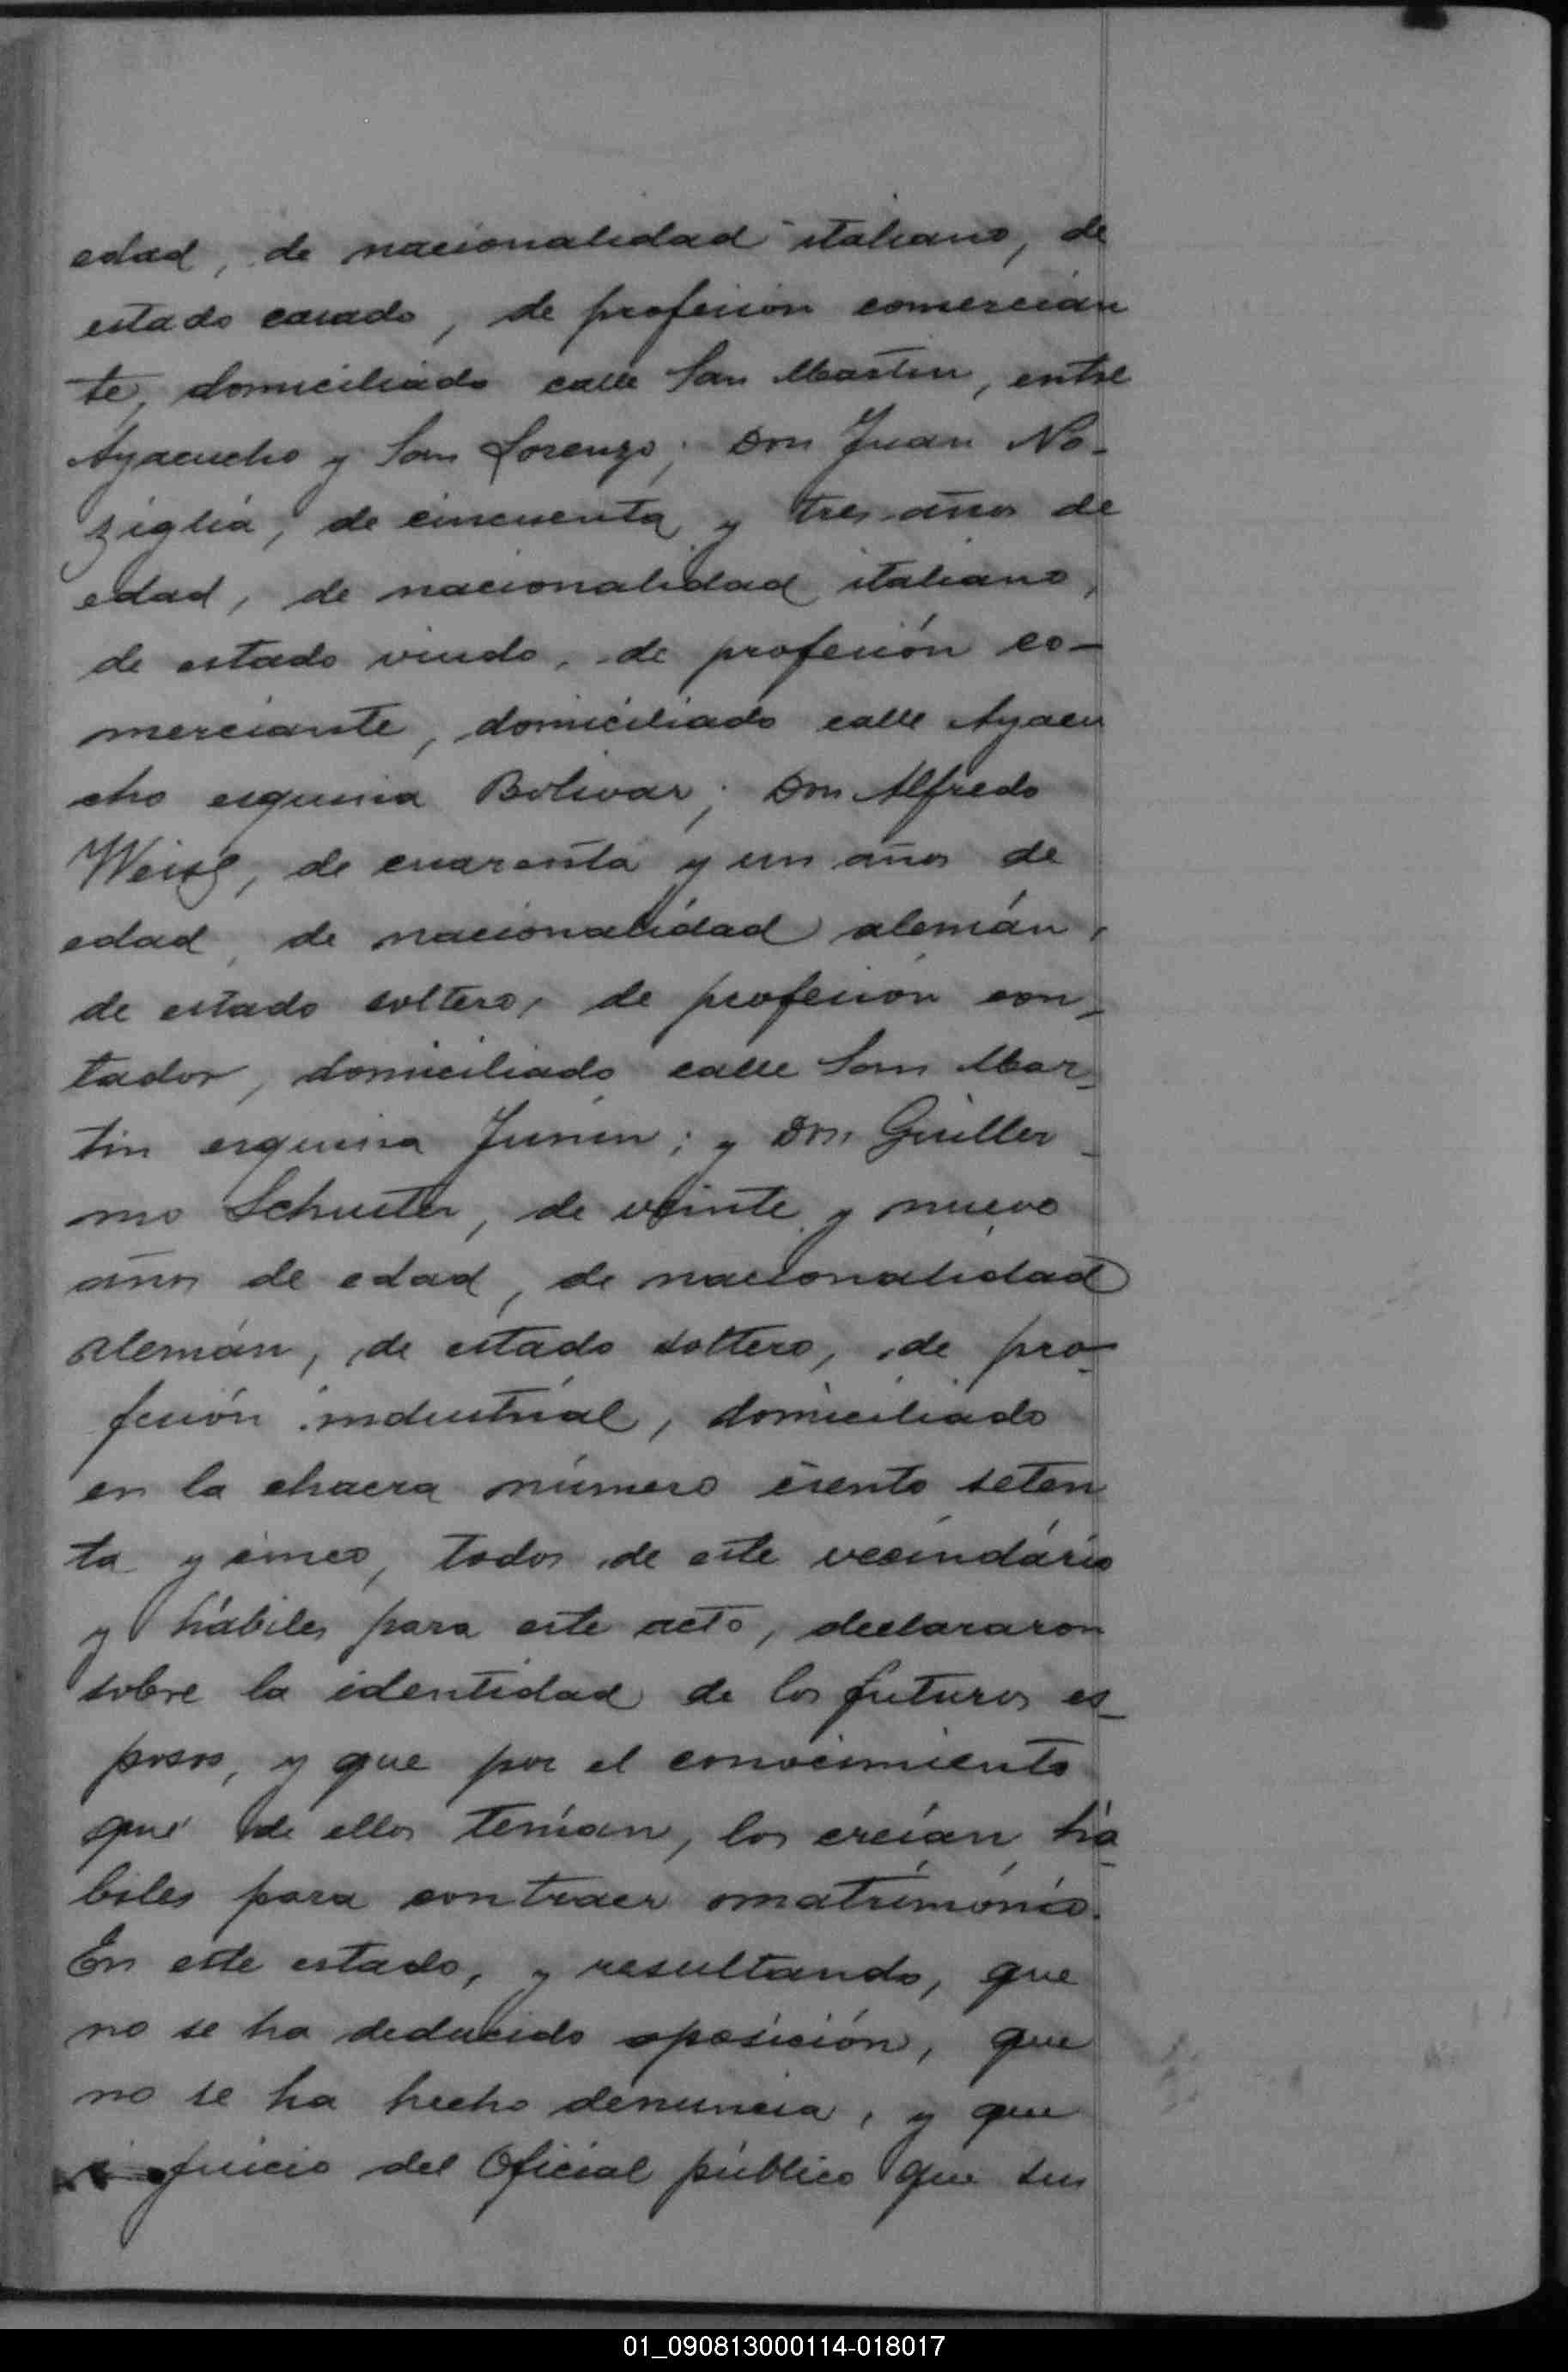 edad, de nacionalidad italiano, de
estado casado, de profesión comercian
te, domiciliado calle San Martin, entre
Ayacucho y San Lorenzo; Don Juan No-
ziglia, de cincuenta y tres años de
edad, de nacionalidad italiano,
de estado viudo, de profesión co-
merciante, domiciliado calle Ayacu
cho esquina Bolivar; Don Alfredo
de cuarenta y un años de
edad, de nacionalidad alemán,
de estado soltero, de profesión con-
tador, domiciliado calle San Mar-
tin esquina Junin; y Don Guiller-
mo Schuster, de veinte y nueve
años de edad, de nacionalidad
alemán, de estado soltero, de pro-
fesión industrial, domiciliado
en la chacra número ciento seten
ta y cinco, todos de este vecindário
y hábiles para este acto, declararon
sobre la identidad de los futuros es-
posos, y que por el conocimiento
que de ellos tenían, los creían há-
biles para contraer matrimónio.
En este estado, y resultando, que
no se ha deducido oposición, que
no se ha hecho denuncia, y que
juicio del Oficial público que sus
01_090813000114-018017